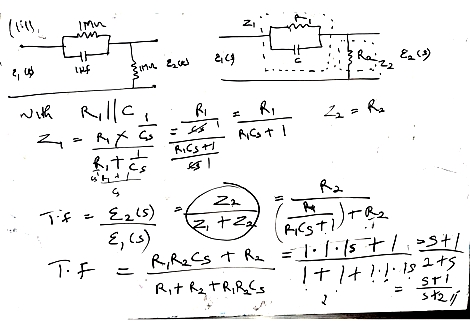 (iii)
1MΩ
1µf
1MΩ
ε₁(s)
ε₂(s)
Z₁
R₁
C
R₂
Z₂
ε₁(s)
ε₂(s)
with R₁ || C
Z₁ = (R₁ × 1/Cs) / (R₁ + 1/Cs) = (R₁/Cs) / ((R₁Cs + 1)/Cs) = R₁ / (R₁Cs + 1) Z₂ = R₂
T.f = ε₂(s) / ε₁(s) = Z₂ / (Z₁ + Z₂) = R₂ / ((R₁ / (R₁Cs + 1)) + R₂)
T.F = (R₁R₂Cs + R₂) / (R₁ + R₂ + R₁R₂Cs) = (1·1·1s + 1) / (1 + 1 + 1·1·1s) = (s+1) / (2+s)
= (s+1) / (s+2) //